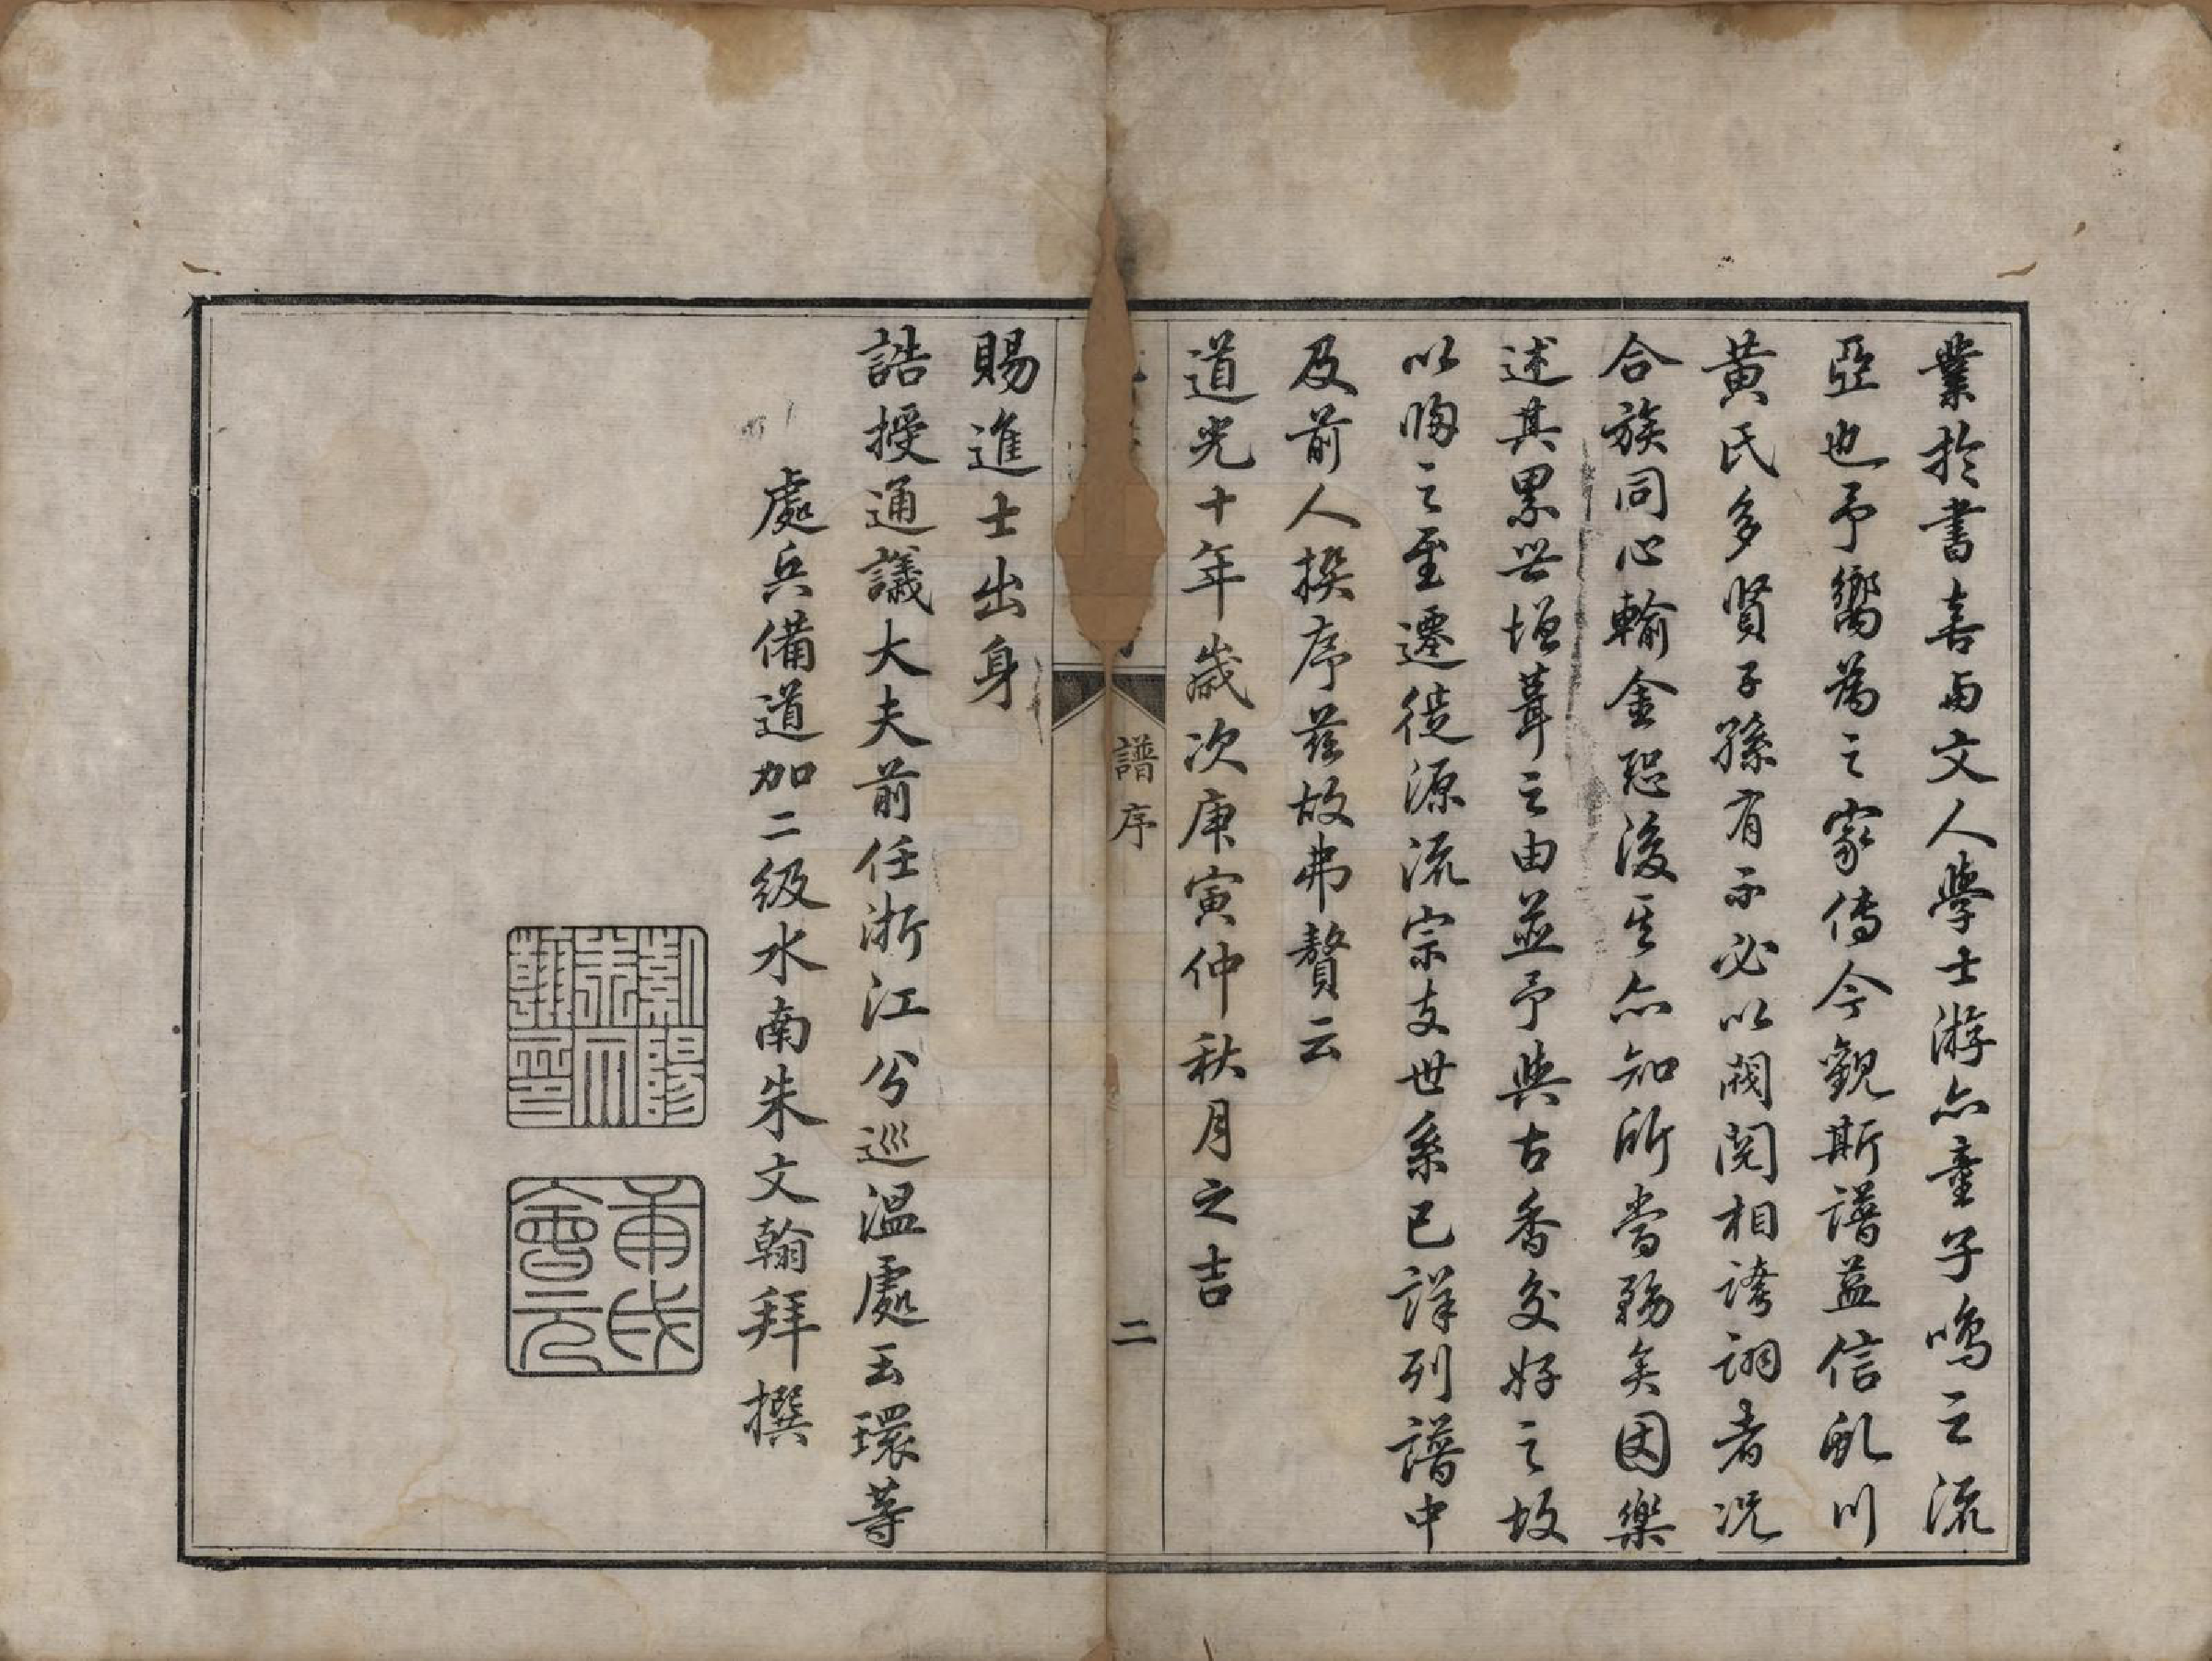 業於書喜與文人學士游亦童子鳴之流
亞也予嚮為之家傳今觀斯譜益信畝川
黃氏多賢子孫有不必以閥閱相誇詡者況
合族同心輸金恐後其亦知所當務矣因樂
述其累世增葺之由並予與古香交好之故
以歸之至遷徙源流宗支世系已詳列譜中
及前人撰序茲故弗贅云
道光十年歲次庚寅仲秋月之吉
譜序
二
賜進士出身
誥授通議大夫前任浙江分巡溫處玉環等
處兵備道加二級水南朱文翰拜撰
紫陽
朱文
翰印
甫氏
會元